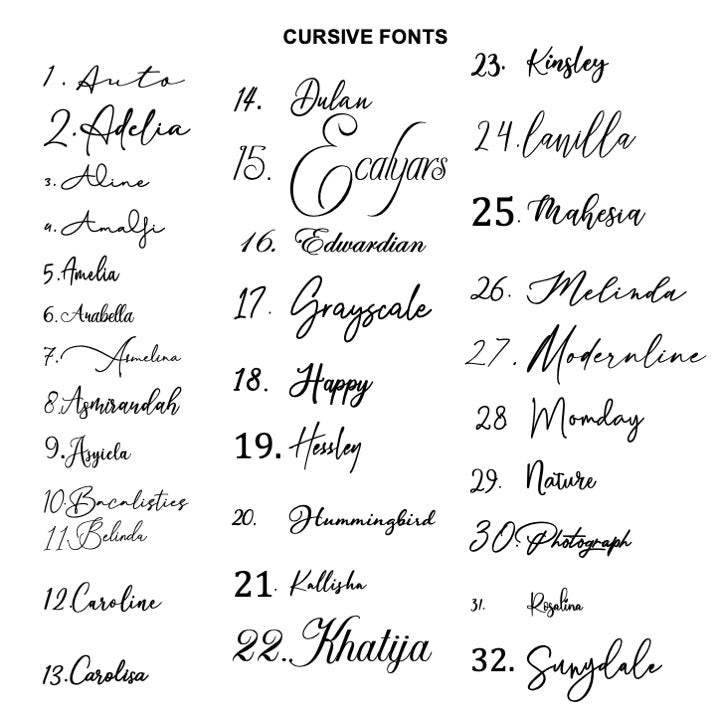 CURSIVE FONTS
1. Auto
2. Adelia
3. Aline
4. Amalfi
5. Amelia
6. Arabella
7. Asmelina
8. Asmiraudah
9. Asyiela
10. Bacalisties
11. Belinda
12. Caroline
13. Carolisa
14. Dulan
15. Ecalyars
16. Edwardian
17. Grayscale
18. Happy
19. Hessley
20. Hummingbird
21. Kallisha
22. Khatija
23. Kinsley
24. lanilla
25. Mahesia
26. Melinda
27. Modernline
28 Momday
29. Nature
30. Photograph
31. Rosalina
32. Sunydale